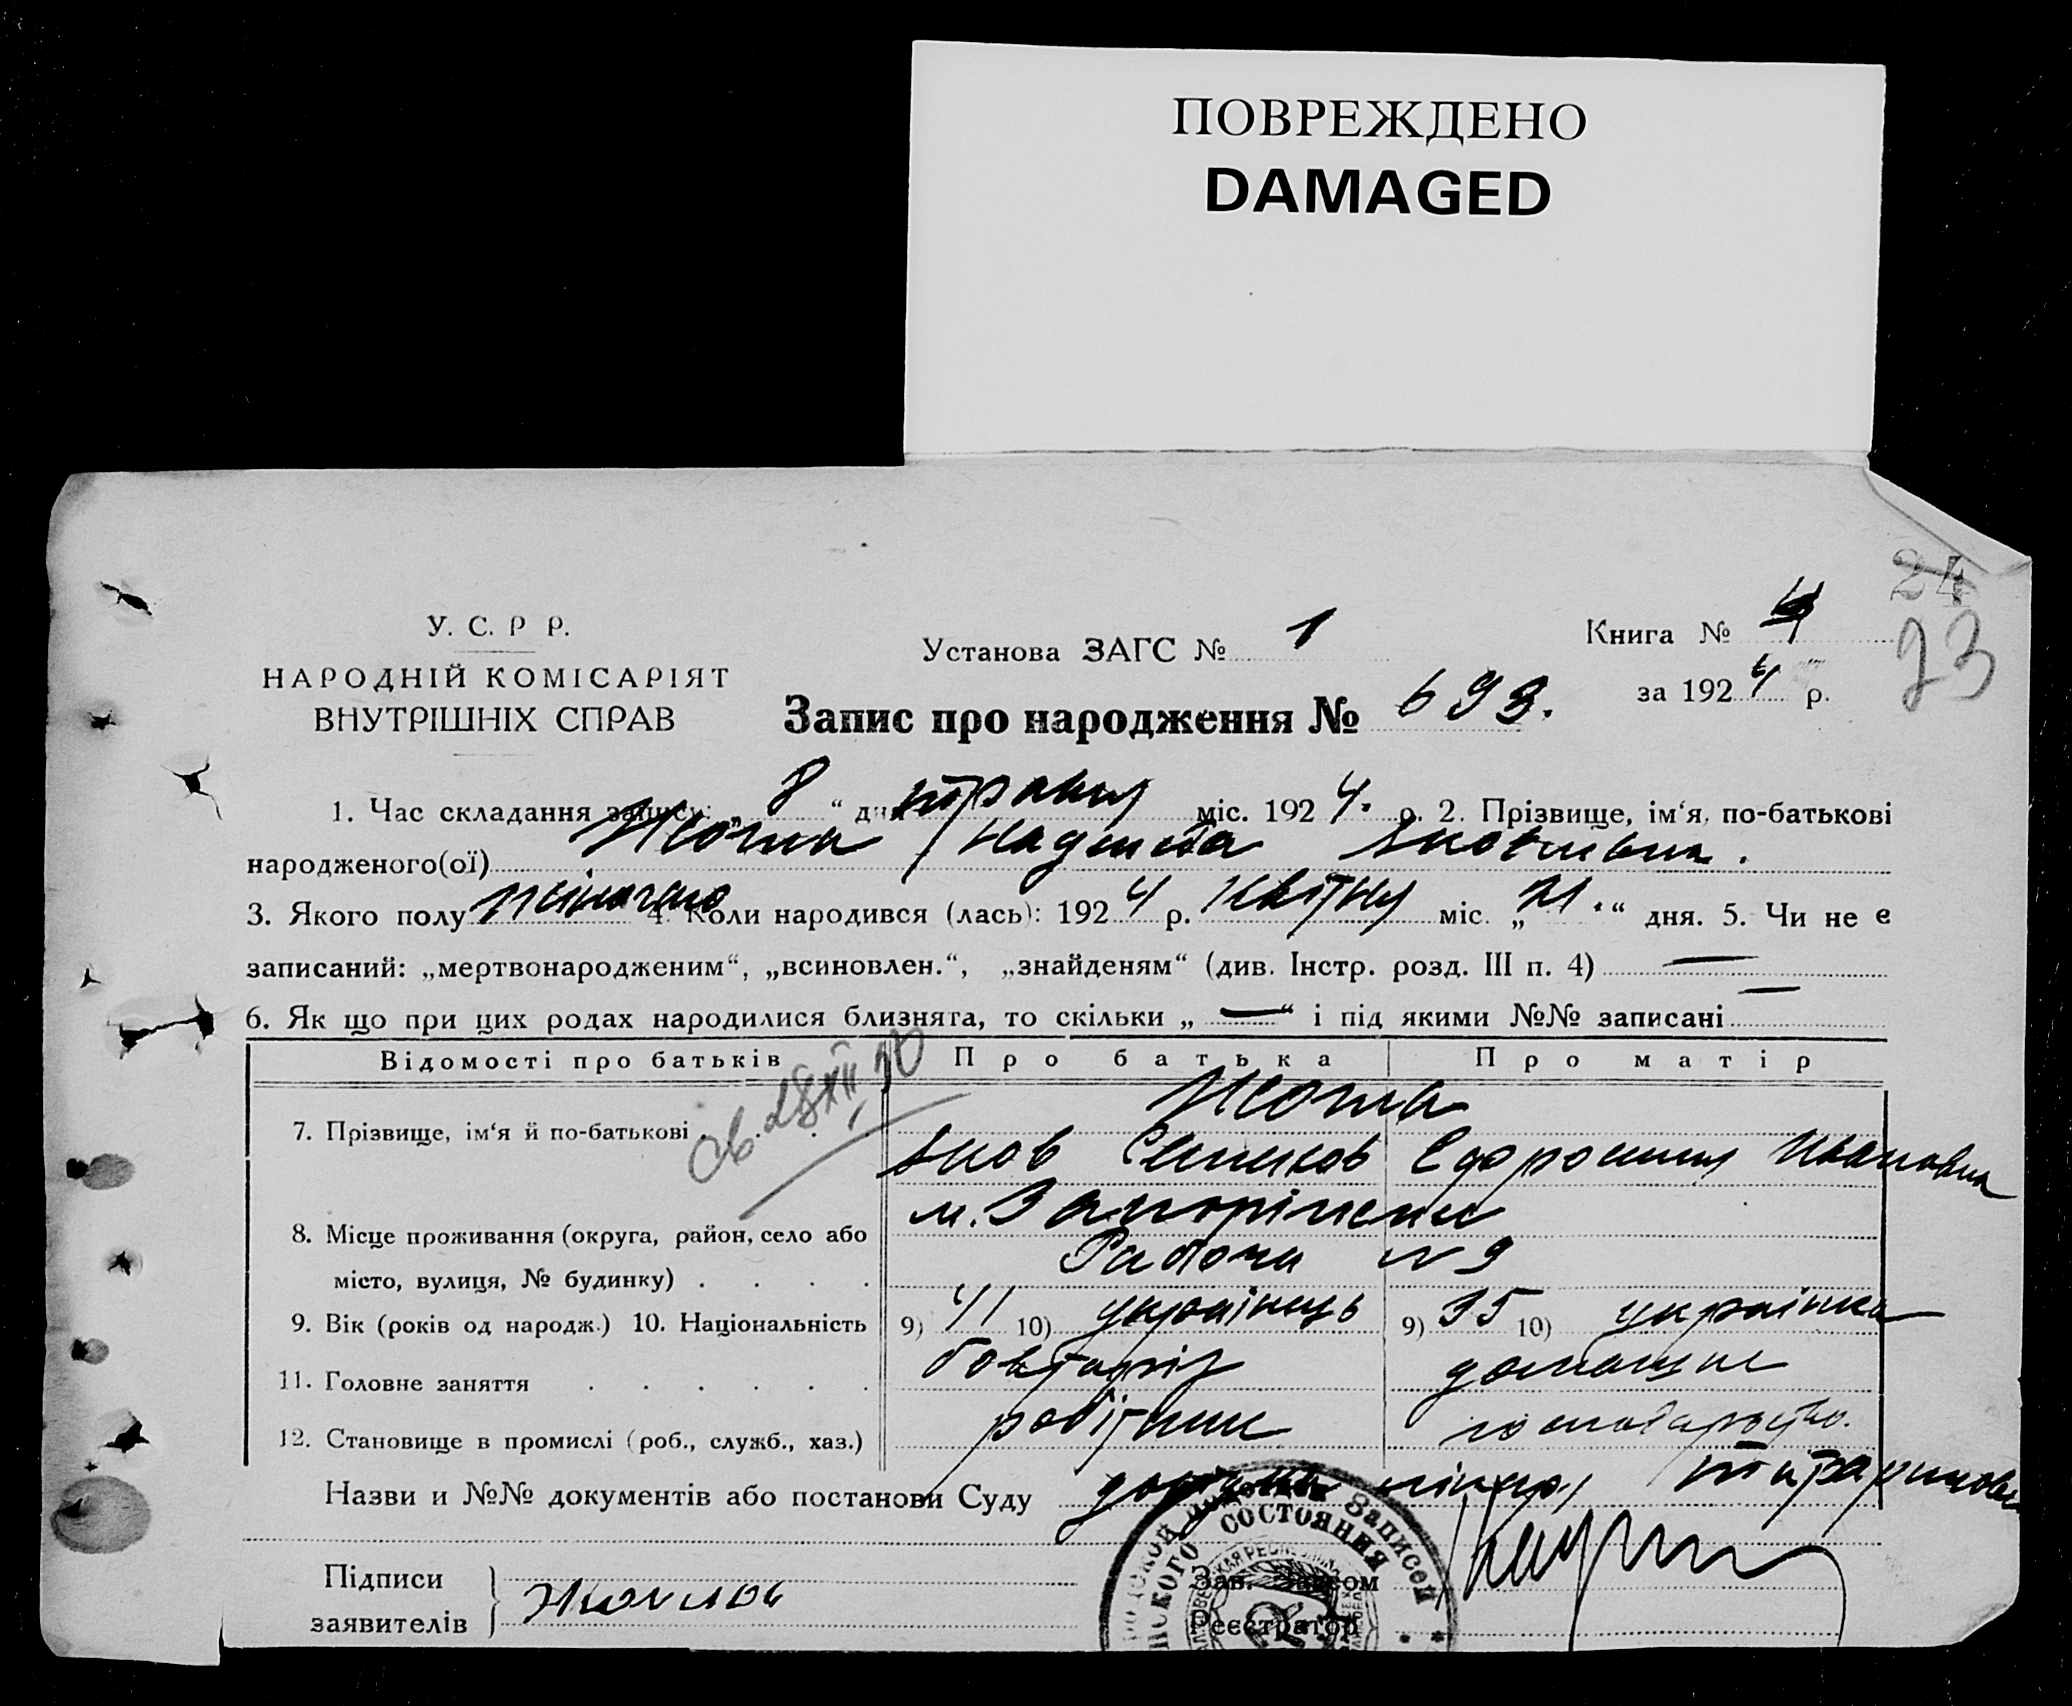 ПОВРЕЖДЕНО
DAMAGED
24
23
У. С. Р Р.
НАРОДНІЙ КОМІСАРІЯТ
ВНУТРІШНІХ СПРАВ
Установа ЗАГС № 1
Книга № 4
за 1924 р.
Запис про народження № 693.
1. Час складання запису: „ 8 “ дня травня міс. 1924. р. 2. Прізвище, ім‘я, по-батькові
народженого(ої) Надежда Яковлівна.
3. Якого полу жіночого 4. Коли народився (лась): 1924 р. квітня міс. „ 21. “ дня. 5. Чи не є
записаний: „мертвонародженим“, „всиновлен.“, „знайденям“ (див. Інстр. розд. III п. 4) —
6. Як що при цих родах народилися близнята, то скільки „ — “ і під якими №№ записані —
Відомості про батьків
Про батька
Про матір
7. Прізвище, ім‘я й по-батькові
Яков
Єфросиния Ивановна
8. Місце проживання (округа, район, село або
місто, вулиця, № будинку)
м. Запоріжжя
Рабоча № 9
9. Вік (років од народж.) 10. Національність
9) 41 10) українець
9) 35 10) українка
11. Головне заняття
домашнє
12. Становище в промислі (роб., служб., хаз.)
робітник
господарство.
Назви и №№ документів або постанови Суду
Записей
состояния
Підписи
заявителів
Зав. Загсом
Реєстратор